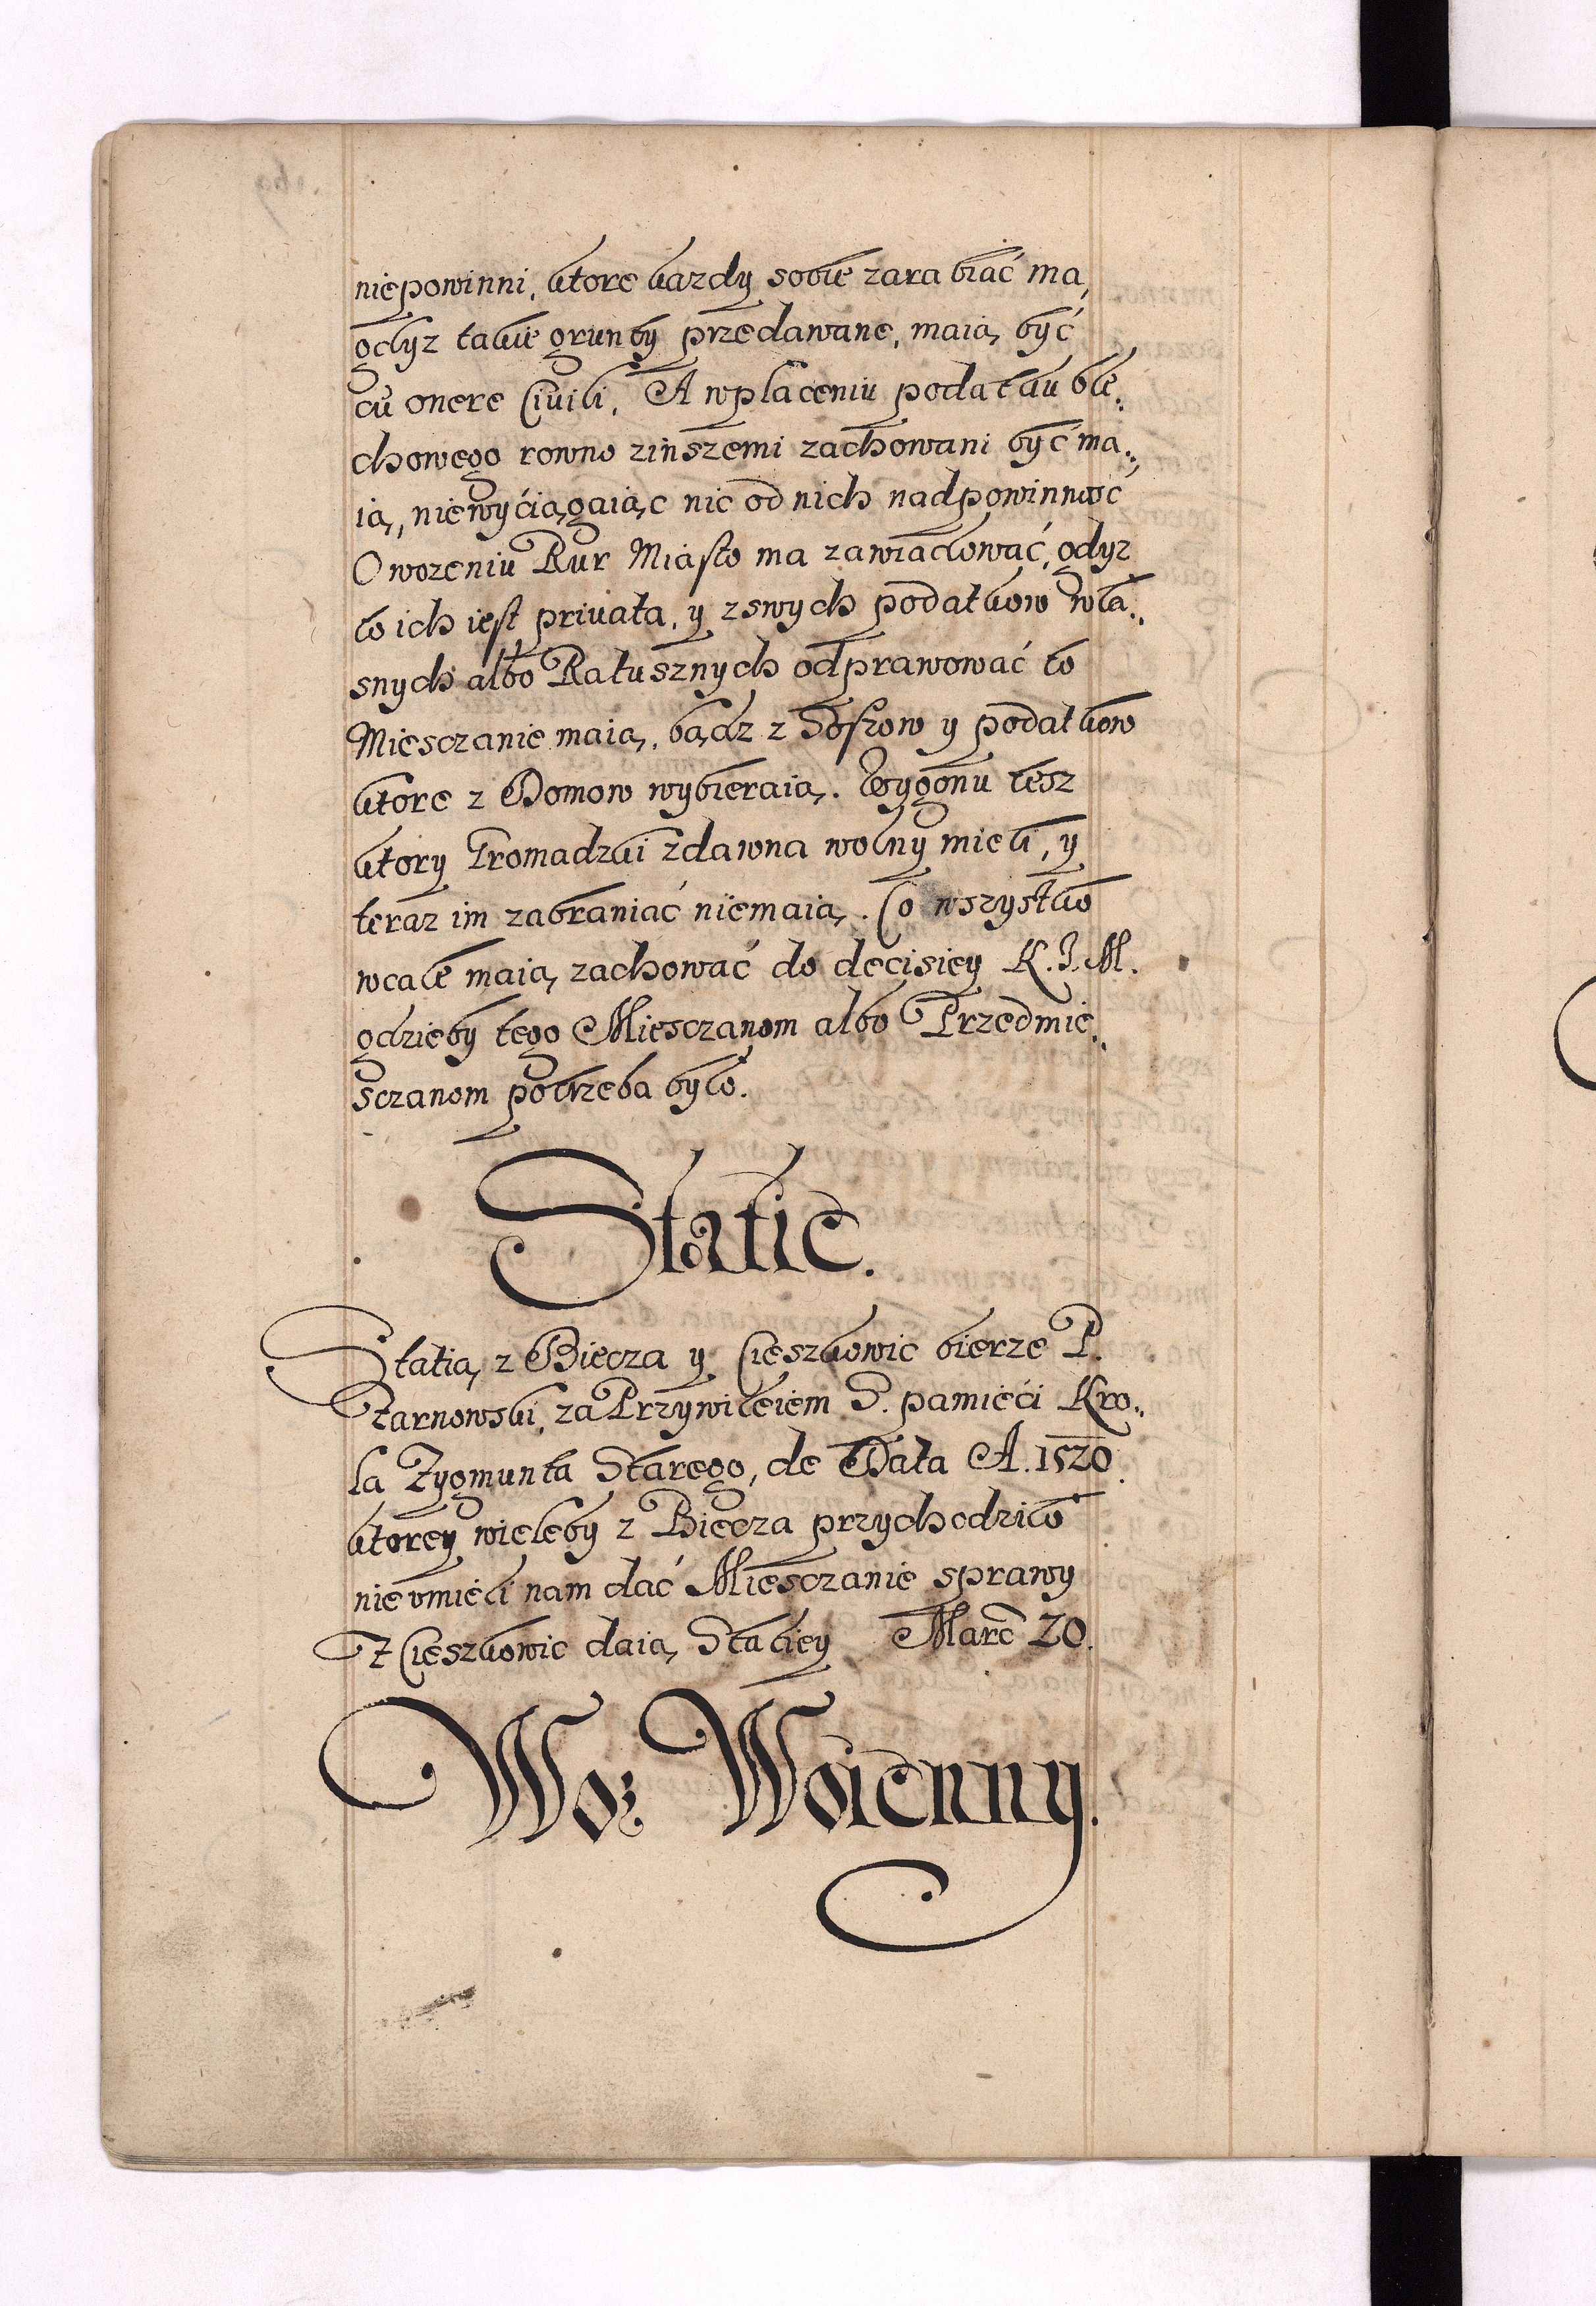 niepowinni, ktore kazdy sobie zarabiać ma,
gdyz takie grunty przedawane, maią być
cū onere Ciuili. A wplaceniu podatku Ble„
chowego rowno zinszemi zachowani być ma„
ią, niewyciągaiąc nic od nich nadpowinność
O wozeniu Rur Miasto ma zawiadować, gdyz
to ich iest priuata, y zswych podatkow wla„
snych albo Ratusznych odprawować to
Miesczanie maią, bądz z Szosow y podatkow
ktore z Domow wybieraią. Wygonu tesz
ktory Gromadzki zdawna wolny mieli, y
teraz im zabraniać niemaią. Co wszystko
wcale maią zachować do decisiey K. J. M.
gdzieby tego Miesczanom albo Przedmie„
sczanom potrzeba bylo.
Statie.
Statią z Biecza y Cieszkowic bierze P.
Tarnowski, za Przywileiem S. pamięci Kro„
la Zygmunta Starego, de Data A. 1520.
ktorey wieleby z Biecza przychodzilo
nie vmieli nam dać Miesczanie sprawy
Z Cieszkowic daią Staciey Marc 20.
Woz Woienny.